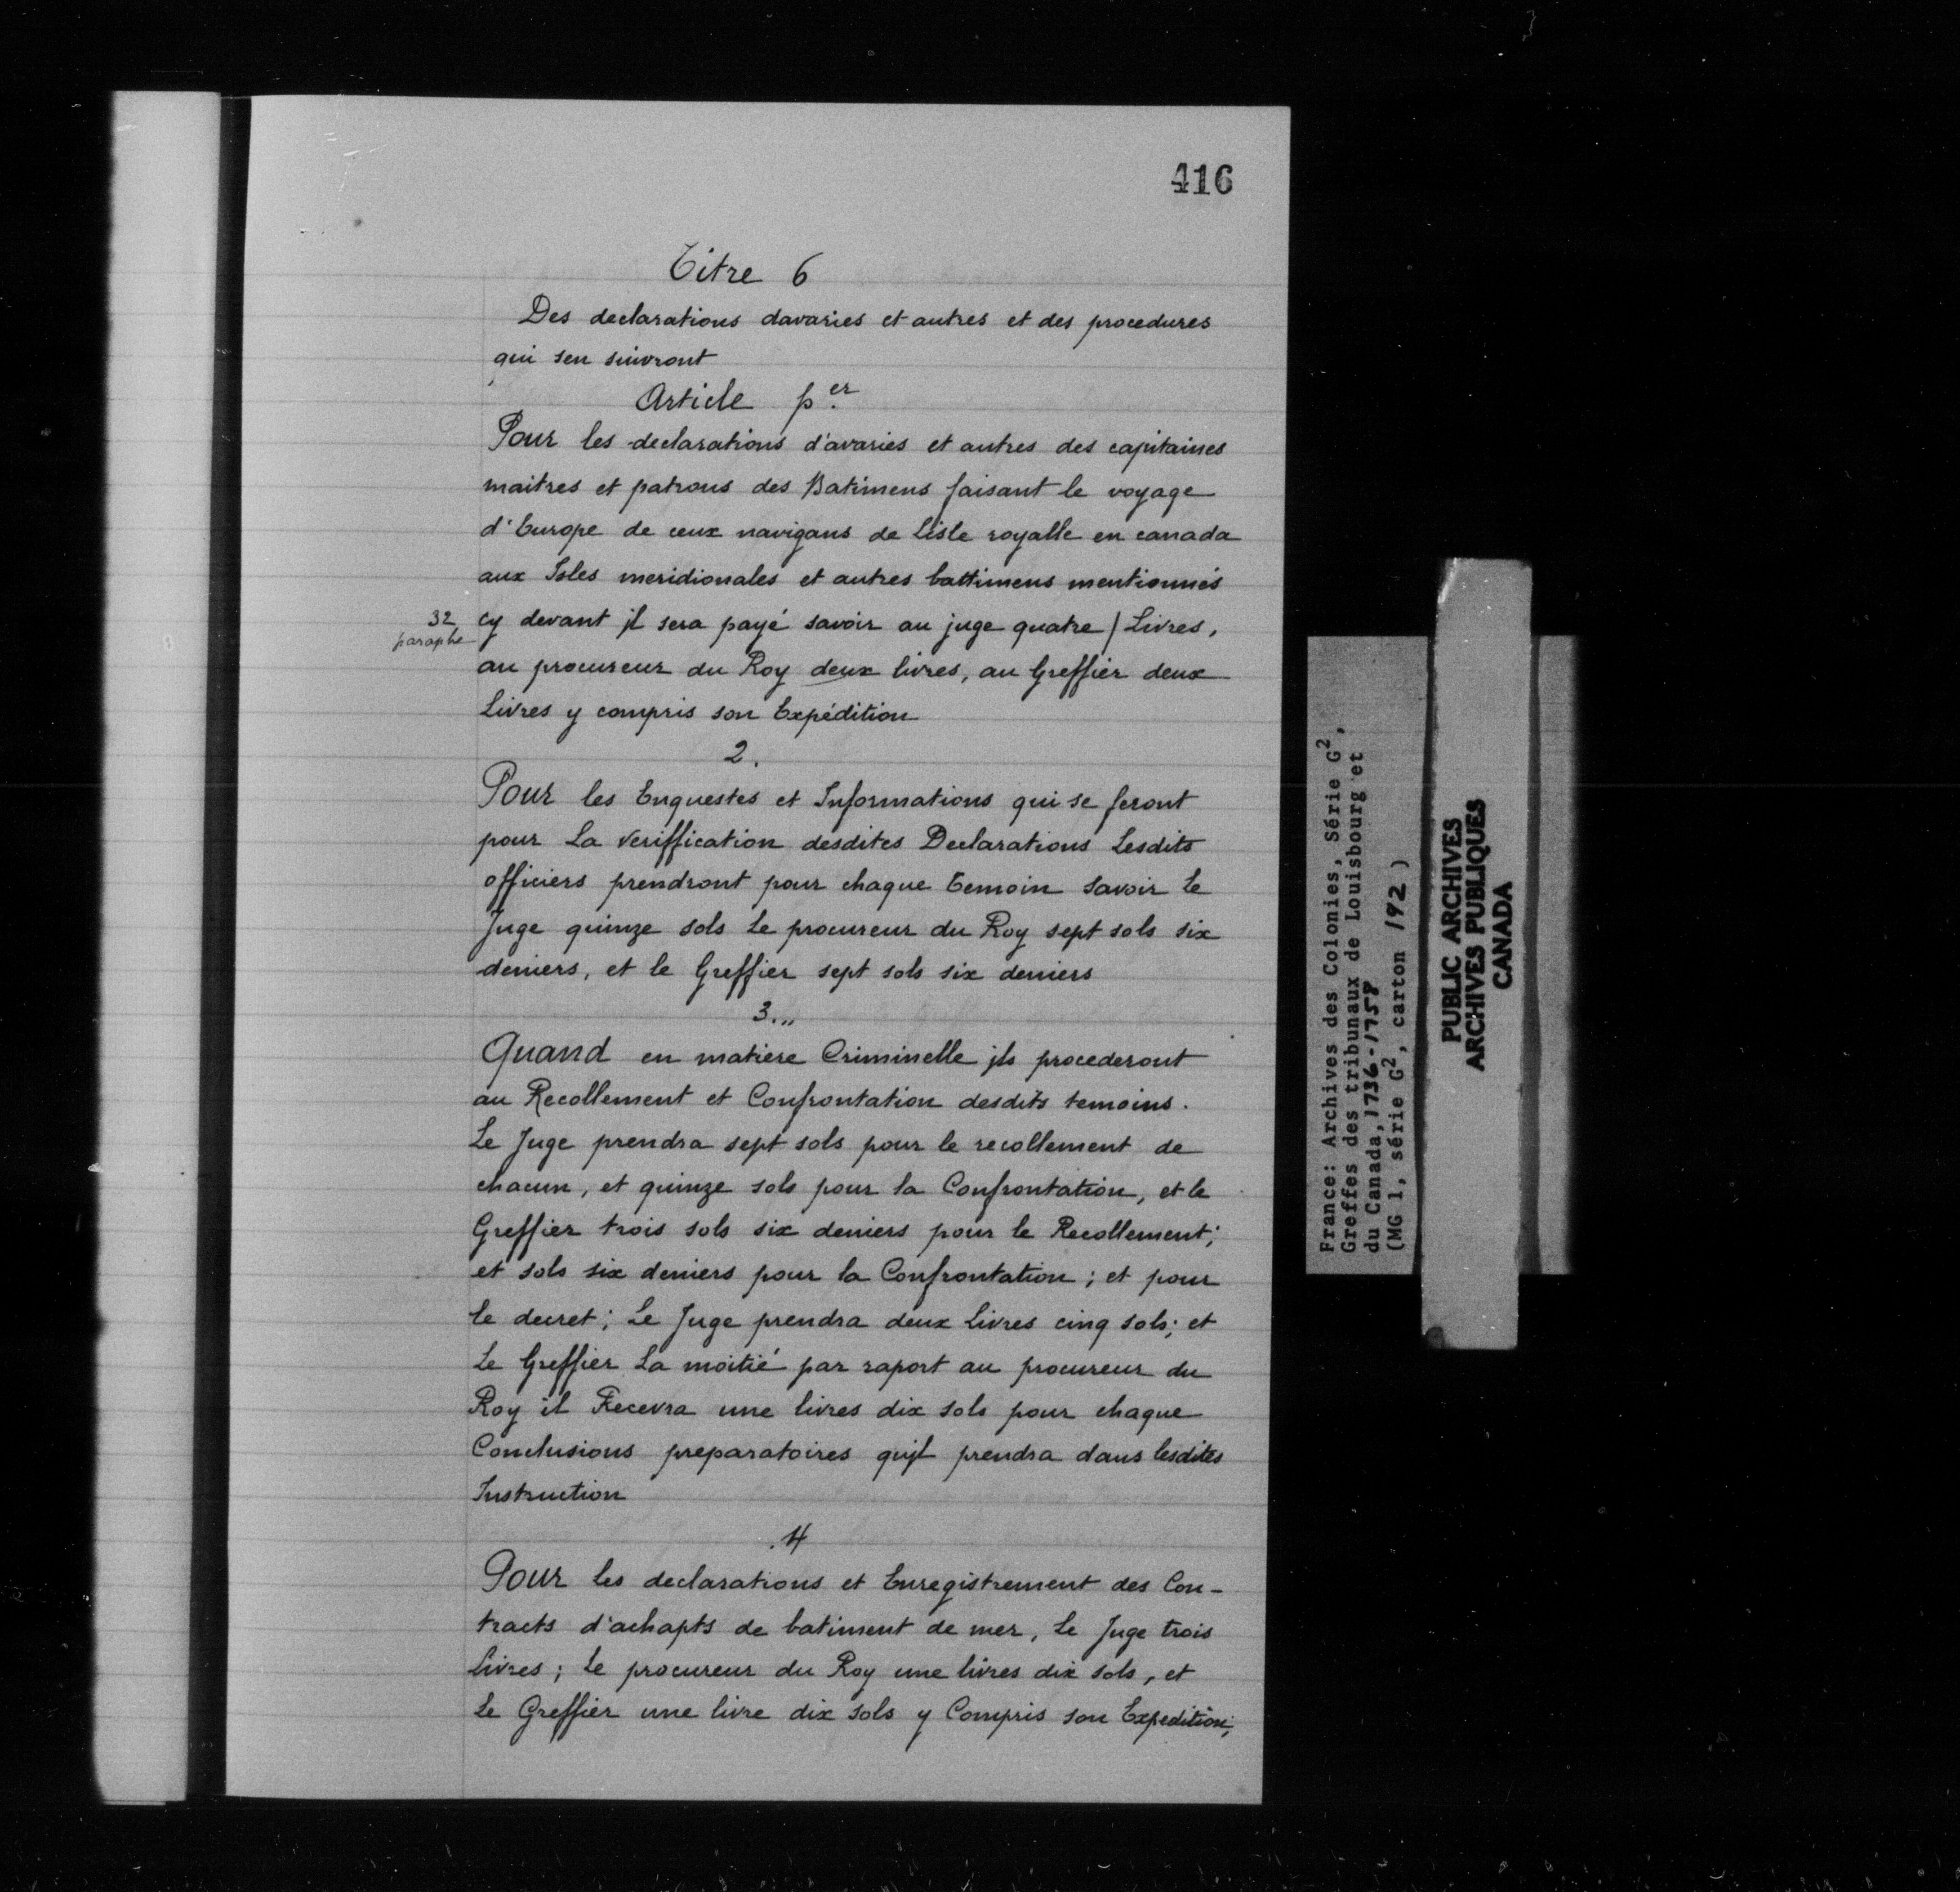 416
Titre 6
Des declarations davaries et autres et des procedures
qui sen suivront
Article p.er
Pour les declarations d'avaries et autres des capitaines
maitres et patrons des Batimens faisant le voyage
d'Europe de ceux navigans de Lisle royalle en canada
aux Isles meridionales et autres battimens mentionnés
32 paraphe
cy devant jl sera payé savoir au juge quatre / Livres,
au procureur du Roy deux livres, au Greffier deux
Livres y compris son Expédition
2.
Pour les Enquestes et Informations qui se feront
pour La veriffication desdites Declarations Lesdits
officiers prendront pour chaque temoin savoir Le
Juge quinze sols Le procureur du Roy sept sols six
deniers, et le Greffier sept sols six deniers
3.,,
Quand en matiere Criminelle jls procederont
au Recollement et Confrontation desdits temoins.
Le Juge prendra sept sols pour le recollement de
chacun, et quinze sols pour la Confrontation, et le
Greffier trois sols six deniers pour le Recollement;
et sols six deniers pour la Confrontation ; et pour
le decret ; Le Juge prendra deux Livres cinq sols ; et
Le Greffier La moitié par raport au procureur du
Roy il Recevra une livres dix sols pour chaque
Conclusions preparatoires qu'jl prendra dans lesdites
Instruction
.4
Pour les declarations et Enregistrement des Con-
tracts d'achapts de batiment de mer, Le Juge trois
Livres ; Le procureur du Roy une livres dix sols, et
Le Greffier une livre dix sols y Compris son Expedition;
France: Archives des Colonies, Série G2,
Greffes des tribunaux de Louisbourg et
du Canada, 1736-1758
(MG 1, série G2, carton 192)
PUBLIC ARCHIVES
ARCHIVES PUBLIQUES
CANADA